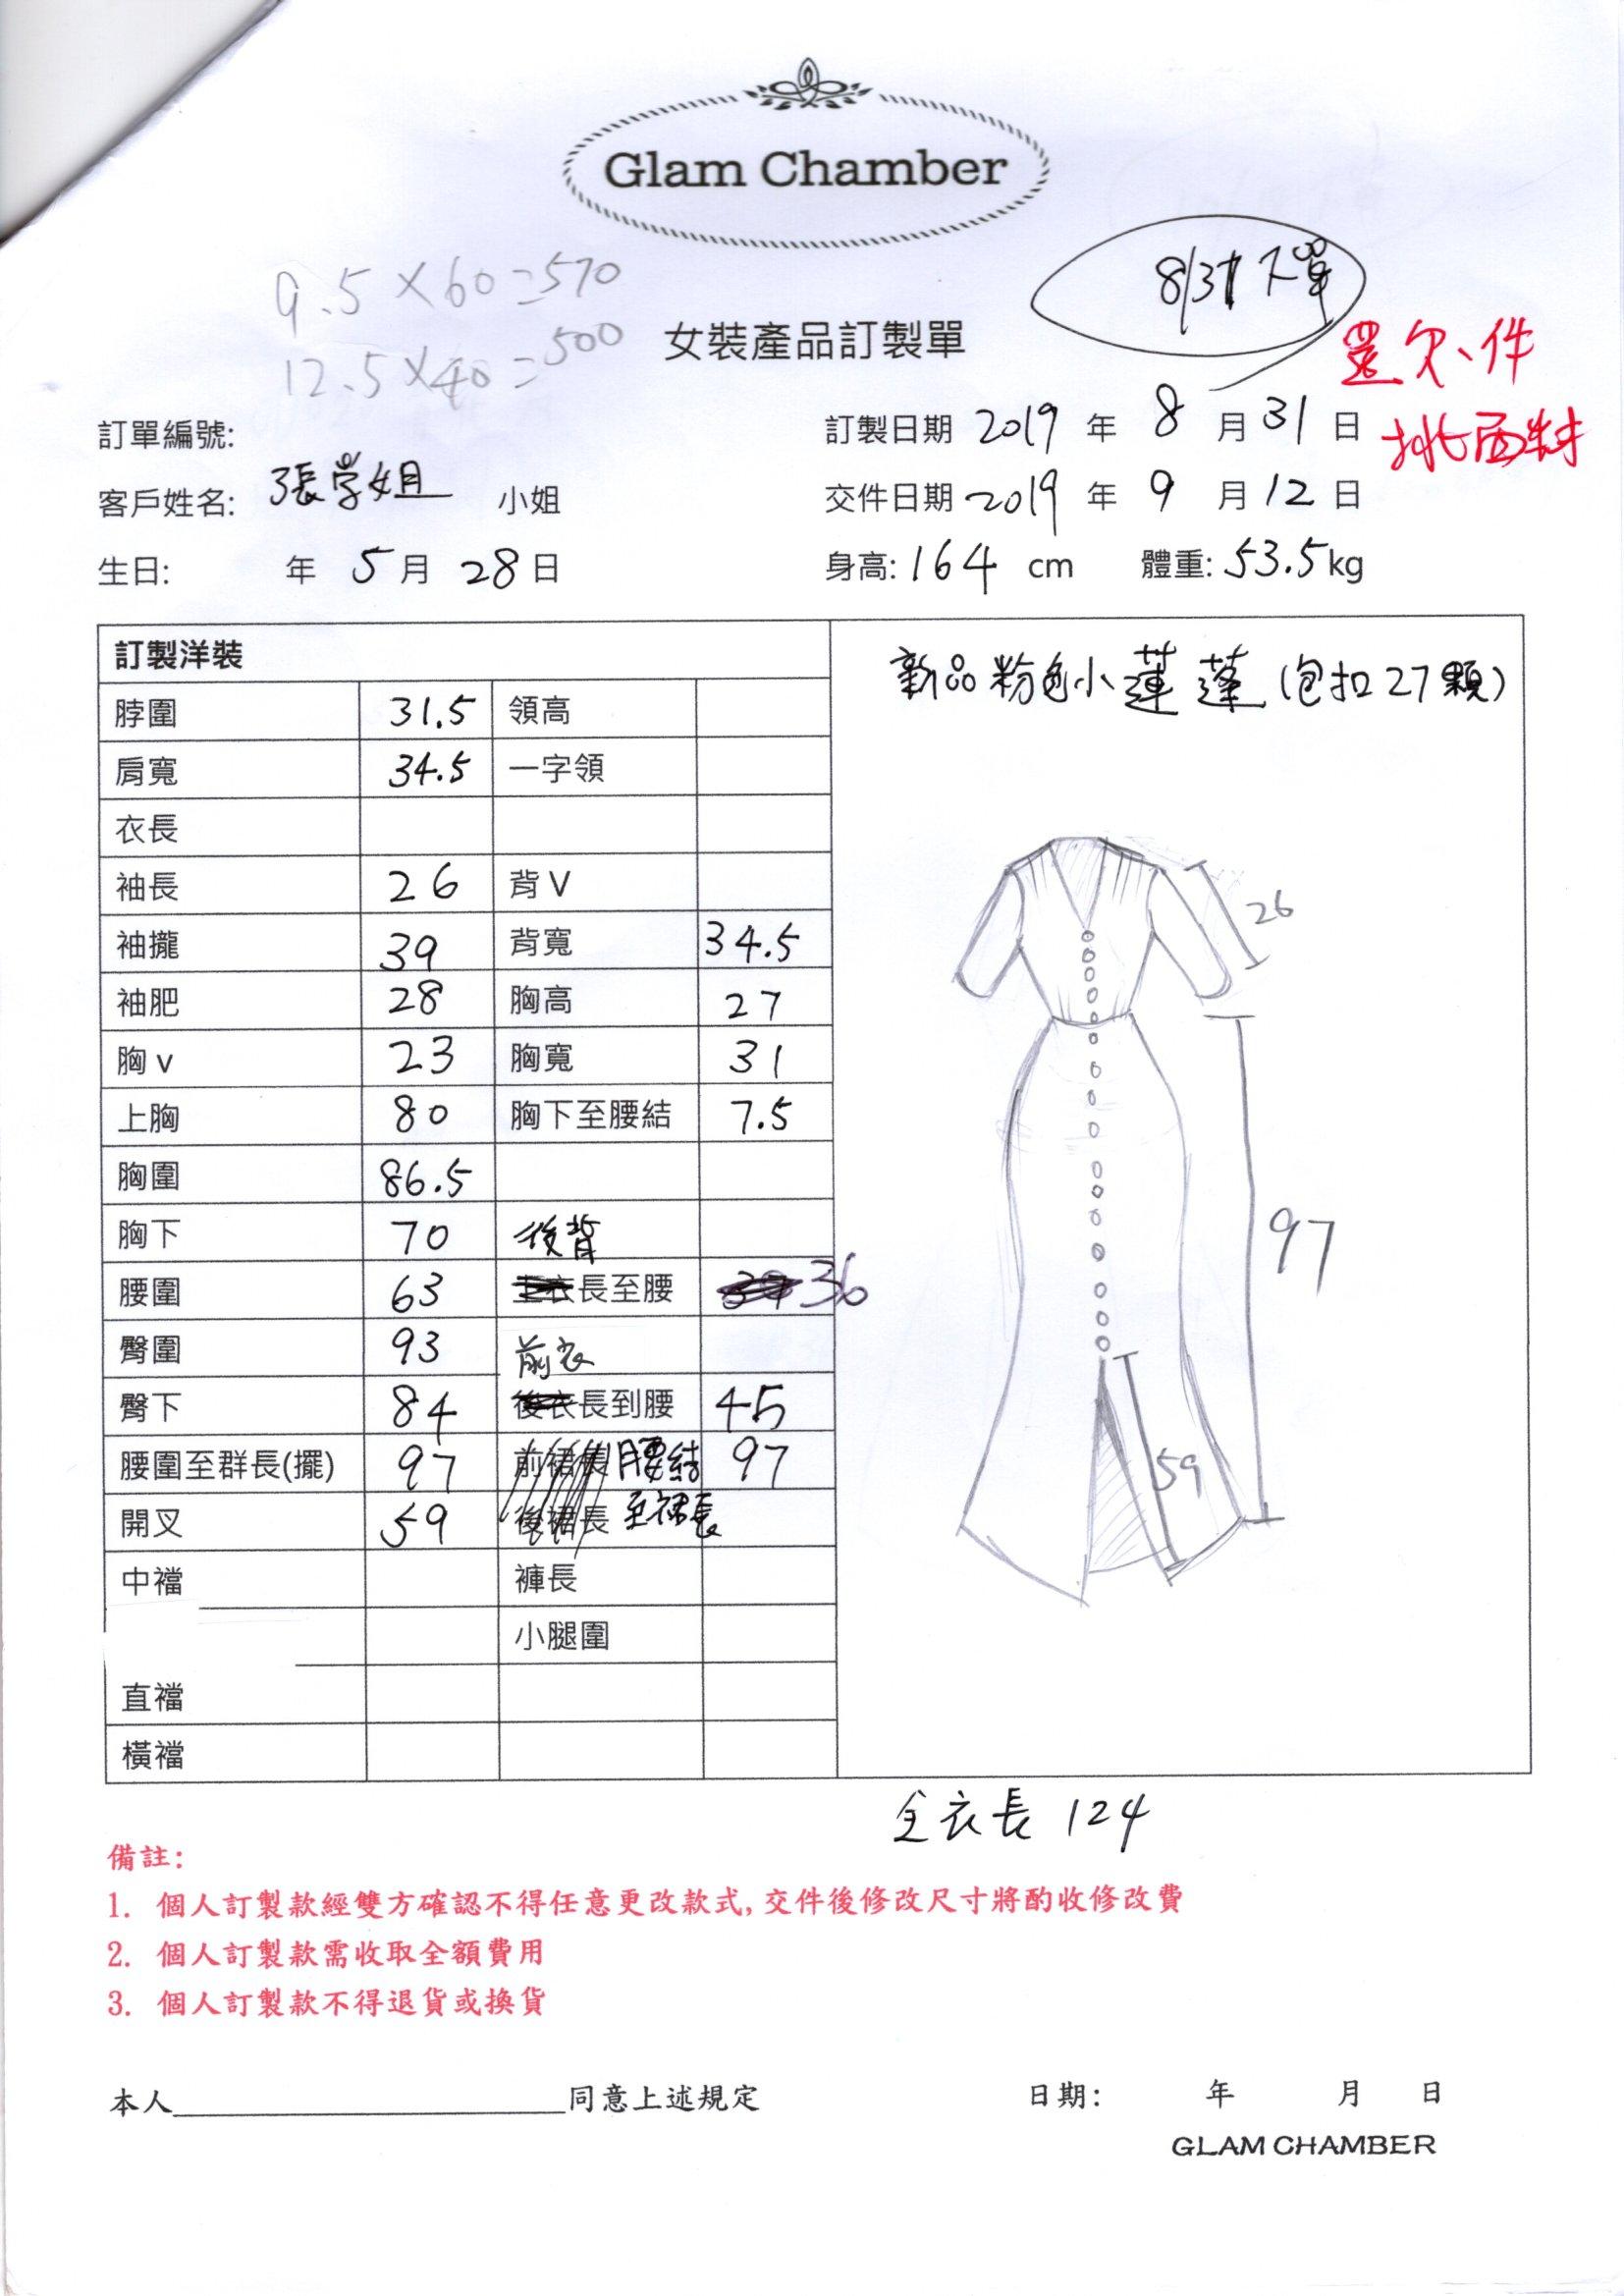 Glam Chamber
9.5×60=570
12.5×40=500
8/31下單
女裝產品訂製單
還欠、件
挑面料
訂單編號:
訂製日期 2019 年 8 月 31 日
客戶姓名: 張学姐 小姐
交件日期 2019 年 9 月 12 日
生日: 年 5 月 28 日
身高: 164 cm 體重: 53.5 kg
訂製洋裝
新品粉色小蓮蓬(包扣27顆)
脖圍 31.5 領高
肩寬 34.5 一字領
衣長
袖長 26 背 V
袖攏 39 背寬 34.5
袖肥 28 胸高 27
胸 v 23 胸寬 31
上胸 80 胸下至腰結 7.5
胸圍 86.5
胸下 70 後背
腰圍 63 長至腰 36
臀圍 93 前衣
臀下 84 後衣長到腰 45
腰圍至群長(擺) 97 前裙長 腰結 97
開叉 59 後裙長 至裙長
中襠 褲長
小腿圍
直襠
橫襠
26
97
59
全衣長 124
備註:
1. 個人訂製款經雙方確認不得任意更改款式, 交件後修改尺寸將酌收修改費
2. 個人訂製款需收取全額費用
3. 個人訂製款不得退貨或換貨
本人____________________同意上述規定
日期: 年 月 日
GLAM CHAMBER